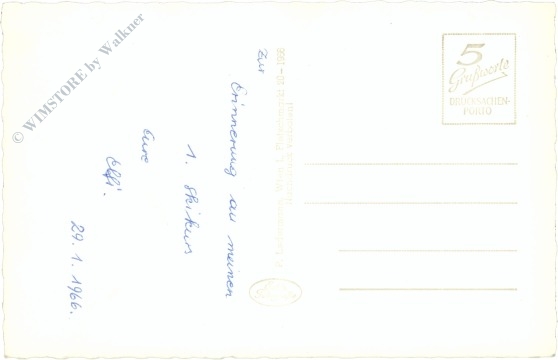 © WIMSTORE by Walkner
Zur
Erinnerung an meinen
1. Skikurs
Eure
Elfi.
29. 1. 1966.
5
Grußworte
DRUCKSACHEN-
PORTO